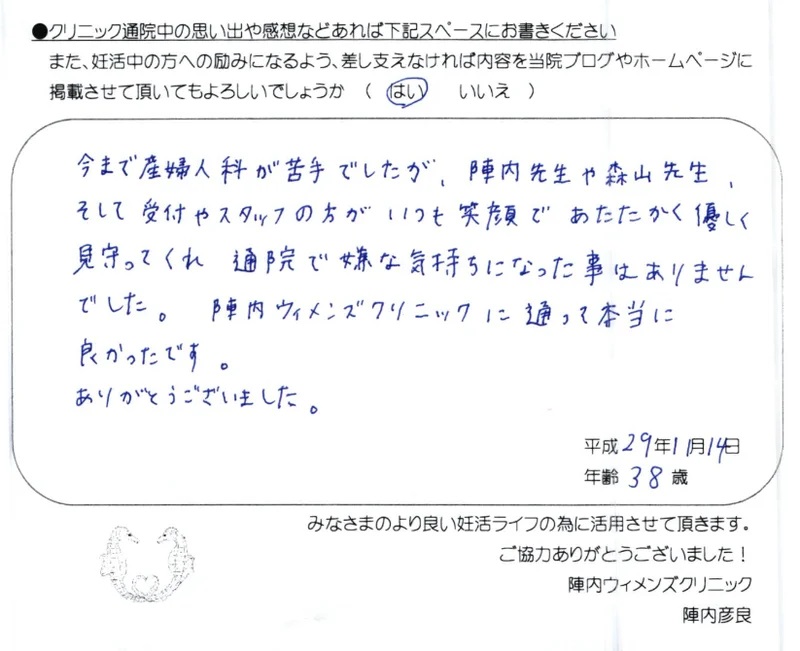 ●クリニック通院中の思い出や感想などあれば下記スペースにお書きください
また、妊活中の方への励みになるよう、差し支えなければ内容を当院ブログやホームページに
掲載させて頂いてもよろしいでしょうか （ はい いいえ ）
今まで産婦人科が苦手でしたが、陣内先生や森山先生、
そして受付やスタッフの方がいつも笑顔であたたかく優しく
見守ってくれ 通院で嫌な気持ちになった事はありません
でした。 陣内ウィメンズクリニックに通って本当に
良かったです。
ありがとうございました。
平成29年11月14日
年齢 38 歳
みなさまのより良い妊活ライフの為に活用させて頂きます。
ご協力ありがとうございました！
陣内ウィメンズクリニック
陣内彦良